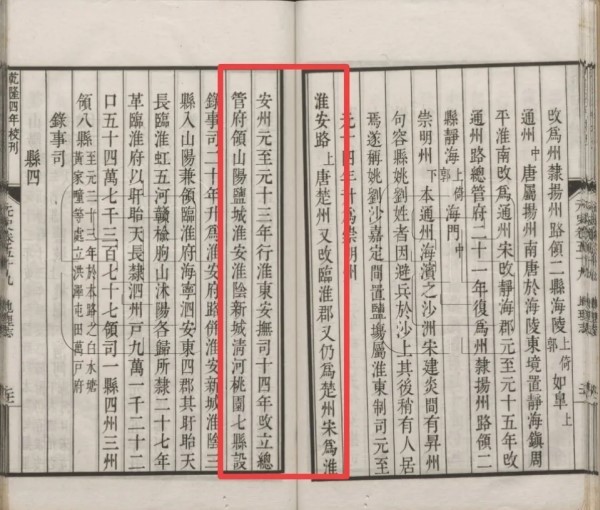 改爲州隸揚州路領二縣海陵上倚郭如皐上
通州中唐屬揚州南唐於海陵東境置靜海鎮周
平淮南改爲通州宋改靜海郡元至元十五年改
通州路總管府二十一年復爲州隸揚州路領二
縣靜海上倚郭海門中
崇明州下本通州海濱之沙洲宋建炎間有昇州
句容縣姚劉姓者因避兵於沙上其後稍有人居
焉遂稱姚劉沙嘉定間置鹽場屬淮東制司元至
元十四年升爲崇明州
淮安路上唐楚州又改臨淮郡又仍爲楚州宋爲淮
安州元至元十三年行淮東安撫司十四年改立總
管府領山陽鹽城淮安淮陰新城清河桃園七縣設
錄事司二十年升爲淮安府路併淮安新城淮陰三
縣入山陽兼領臨淮府海寧泗安東四郡其盱眙天
長臨淮虹五河贛榆朐山沭陽各歸所隸二十七年
革臨淮府以盱眙天長隸泗州戶九萬一千二十二
口五十四萬七千三百七十七領司一縣四州三州
領八縣至元二十三年於本路之白水塘
黃家疃等處立洪澤屯田萬戶府
錄事司
縣四
乾隆四年校刊
元史卷五十九 地理志